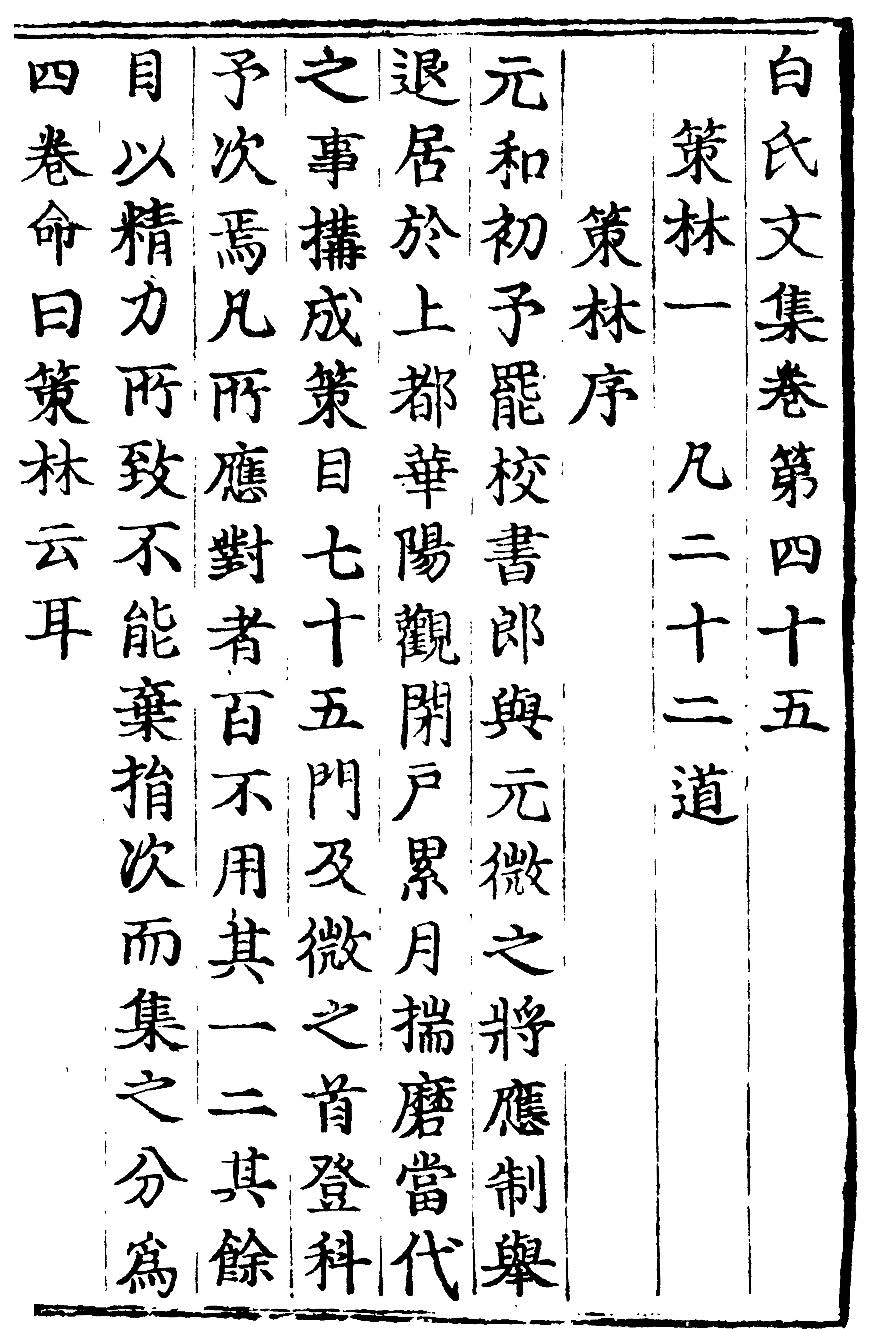 白氏文集卷第四十五
策林一　凡二十二道
策林序
元和初予罷校書郎與元微之將應制舉
退居於上都華陽觀閉戶累月揣磨當代
之事構成策目七十五門及微之首登科
予次焉凡所應對者百不用其一二其餘
目以精力所致不能棄捐次而集之分為
四卷命曰策林云耳